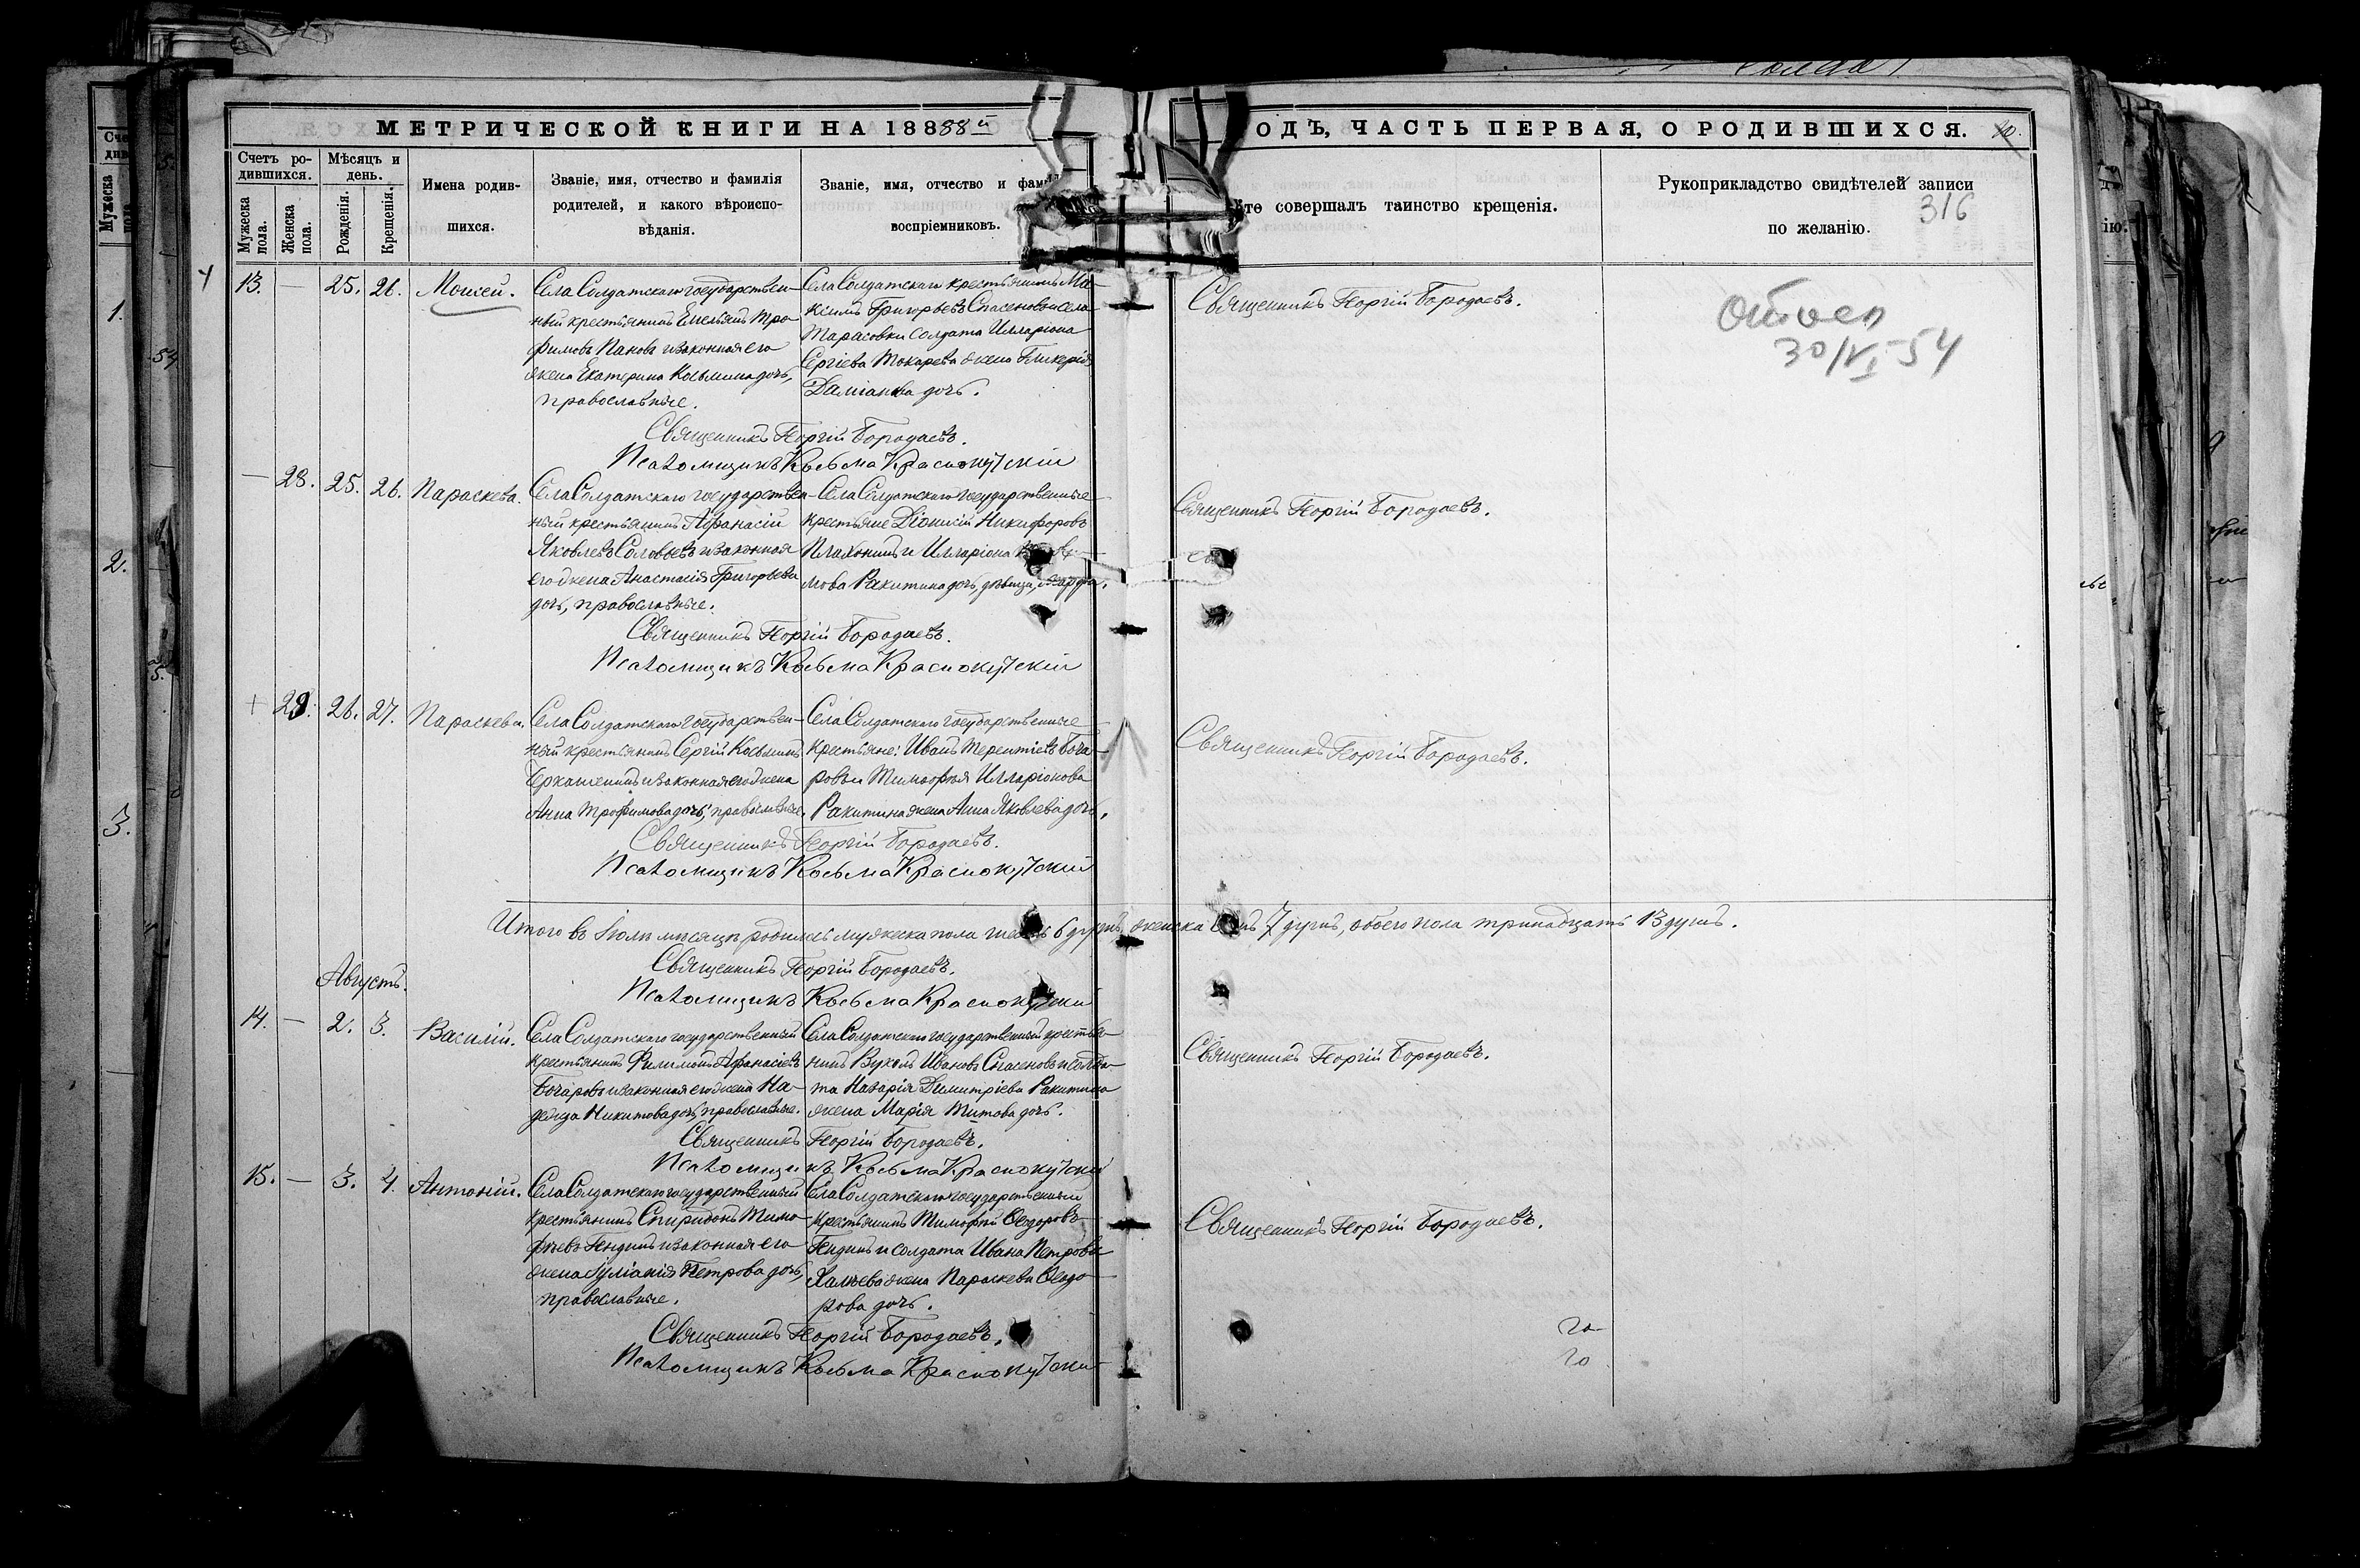 МЕТРИЧЕСКОЙ КНИГИ НА 18888й
ОДЪ, ЧАСТЬ ПЕРВАЯ, О РОДИВШИХСЯ.
Счетъ ро-
дившихся.
Мужеска пола.
Женска пола.
Мѣсяцъ и
день.
Рожденія.
Крещенія.
Имена родив-
шихся.
Званіе, имя, отчество и фамилія
родителей, и какого вѣроиспо-
вѣданія.
Званіе, имя, отчество и
воспріемниковъ.
совершалъ таинство крещенія.
Рукоприкладство свидѣтелей записи
по желанію.
316
13. — 25. 26. Моисей.
Села Солдатскаго государствен-
ный крестьянинъ Емельянъ Тро-
фимовъ Пановъ и законная его
жена Екатерина Косьмина дочь,
православные.
Села Солдатскаго крестьянинъ Ма-
ксимъ Григорьевъ Спасеновъ и села
Тарасовки солдата Илларіона
Сергіева Токарева жена Гликерія
Даміанова дочь.
Священникъ Георгій Бородаевъ.
30/VI-54
Священникъ Георгій Бородаевъ.
Псаломщикъ Косьма Краснокутскій
— 28. 25. 26. Параскева.
Села Солдатскаго государствен-
ный крестьянинъ Аѳанасій
Яковлевъ Соловьевъ и законная
его жена Анастасія Григорьева
дочь, православные.
Села Солдатскаго государственные
крестьяне Діонисій Никифоровъ
и Илларіона
мова Ракитина дочь, дѣвица,
Священникъ Георгій Бородаевъ.
Священникъ Георгій Бородаевъ.
Псаломщикъ Косьма Краснокутскій
+ 29. 26. 27. Параскева.
Села Солдатскаго государствен-
ный крестьянинъ Сергій Косьминъ
Черкашенинъ и законная его жена
Анна Трофимова дочь, православные.
Села Солдатскаго государственные
крестьяне: Иванъ Терентіевъ Боча-
ровъ и Тимофея Илларіонова
Ракитина жена Анна Яковлева дочь.
Священникъ Георгій Бородаевъ.
Священникъ Георгій Бородаевъ.
Псаломщикъ Косьма Краснокутскій
Итого въ Іюлѣ мѣсяцѣ родилось мужеска пола шесть 6 душъ, женска семь 7 душъ, обоего пола тринадцать 13 душъ.
Священникъ Георгій Бородаевъ.
Псаломщикъ Косьма Краснокутскій
Августъ.
14. — 2. 3. Василій.
Села Солдатскаго государственный
крестьянинъ Филимонъ Аѳанасіевъ
Бочаровъ и законная его жена На-
дежда Никитова дочь, православные.
Села Солдатскаго государственный крестья-
нинъ Вуколъ Ивановъ Спасеновъ и солда-
та Назарія Димитріева Ракитина
жена Марія Титова дочь.
Священникъ Георгій Бородаевъ.
Священникъ Георгій Бородаевъ.
Псаломщикъ Косьма Краснокутскій
15. — 3. 4. Антоній.
Села Солдатскаго государственный
крестьянинъ Спиридонъ Тимо-
фѣевъ Гендинъ и законная его
жена Іуліанія Петрова дочь,
православные.
Села Солдатскаго государственный
крестьянинъ Тимофей Ѳедоровъ
Гендинъ и солдата Ивана Петрова
Халѣева жена Параскева Ѳедо-
рова дочь.
Священникъ Георгій Бородаевъ.
Священникъ Георгій Бородаевъ.
Псаломщикъ Косьма Краснокутскій